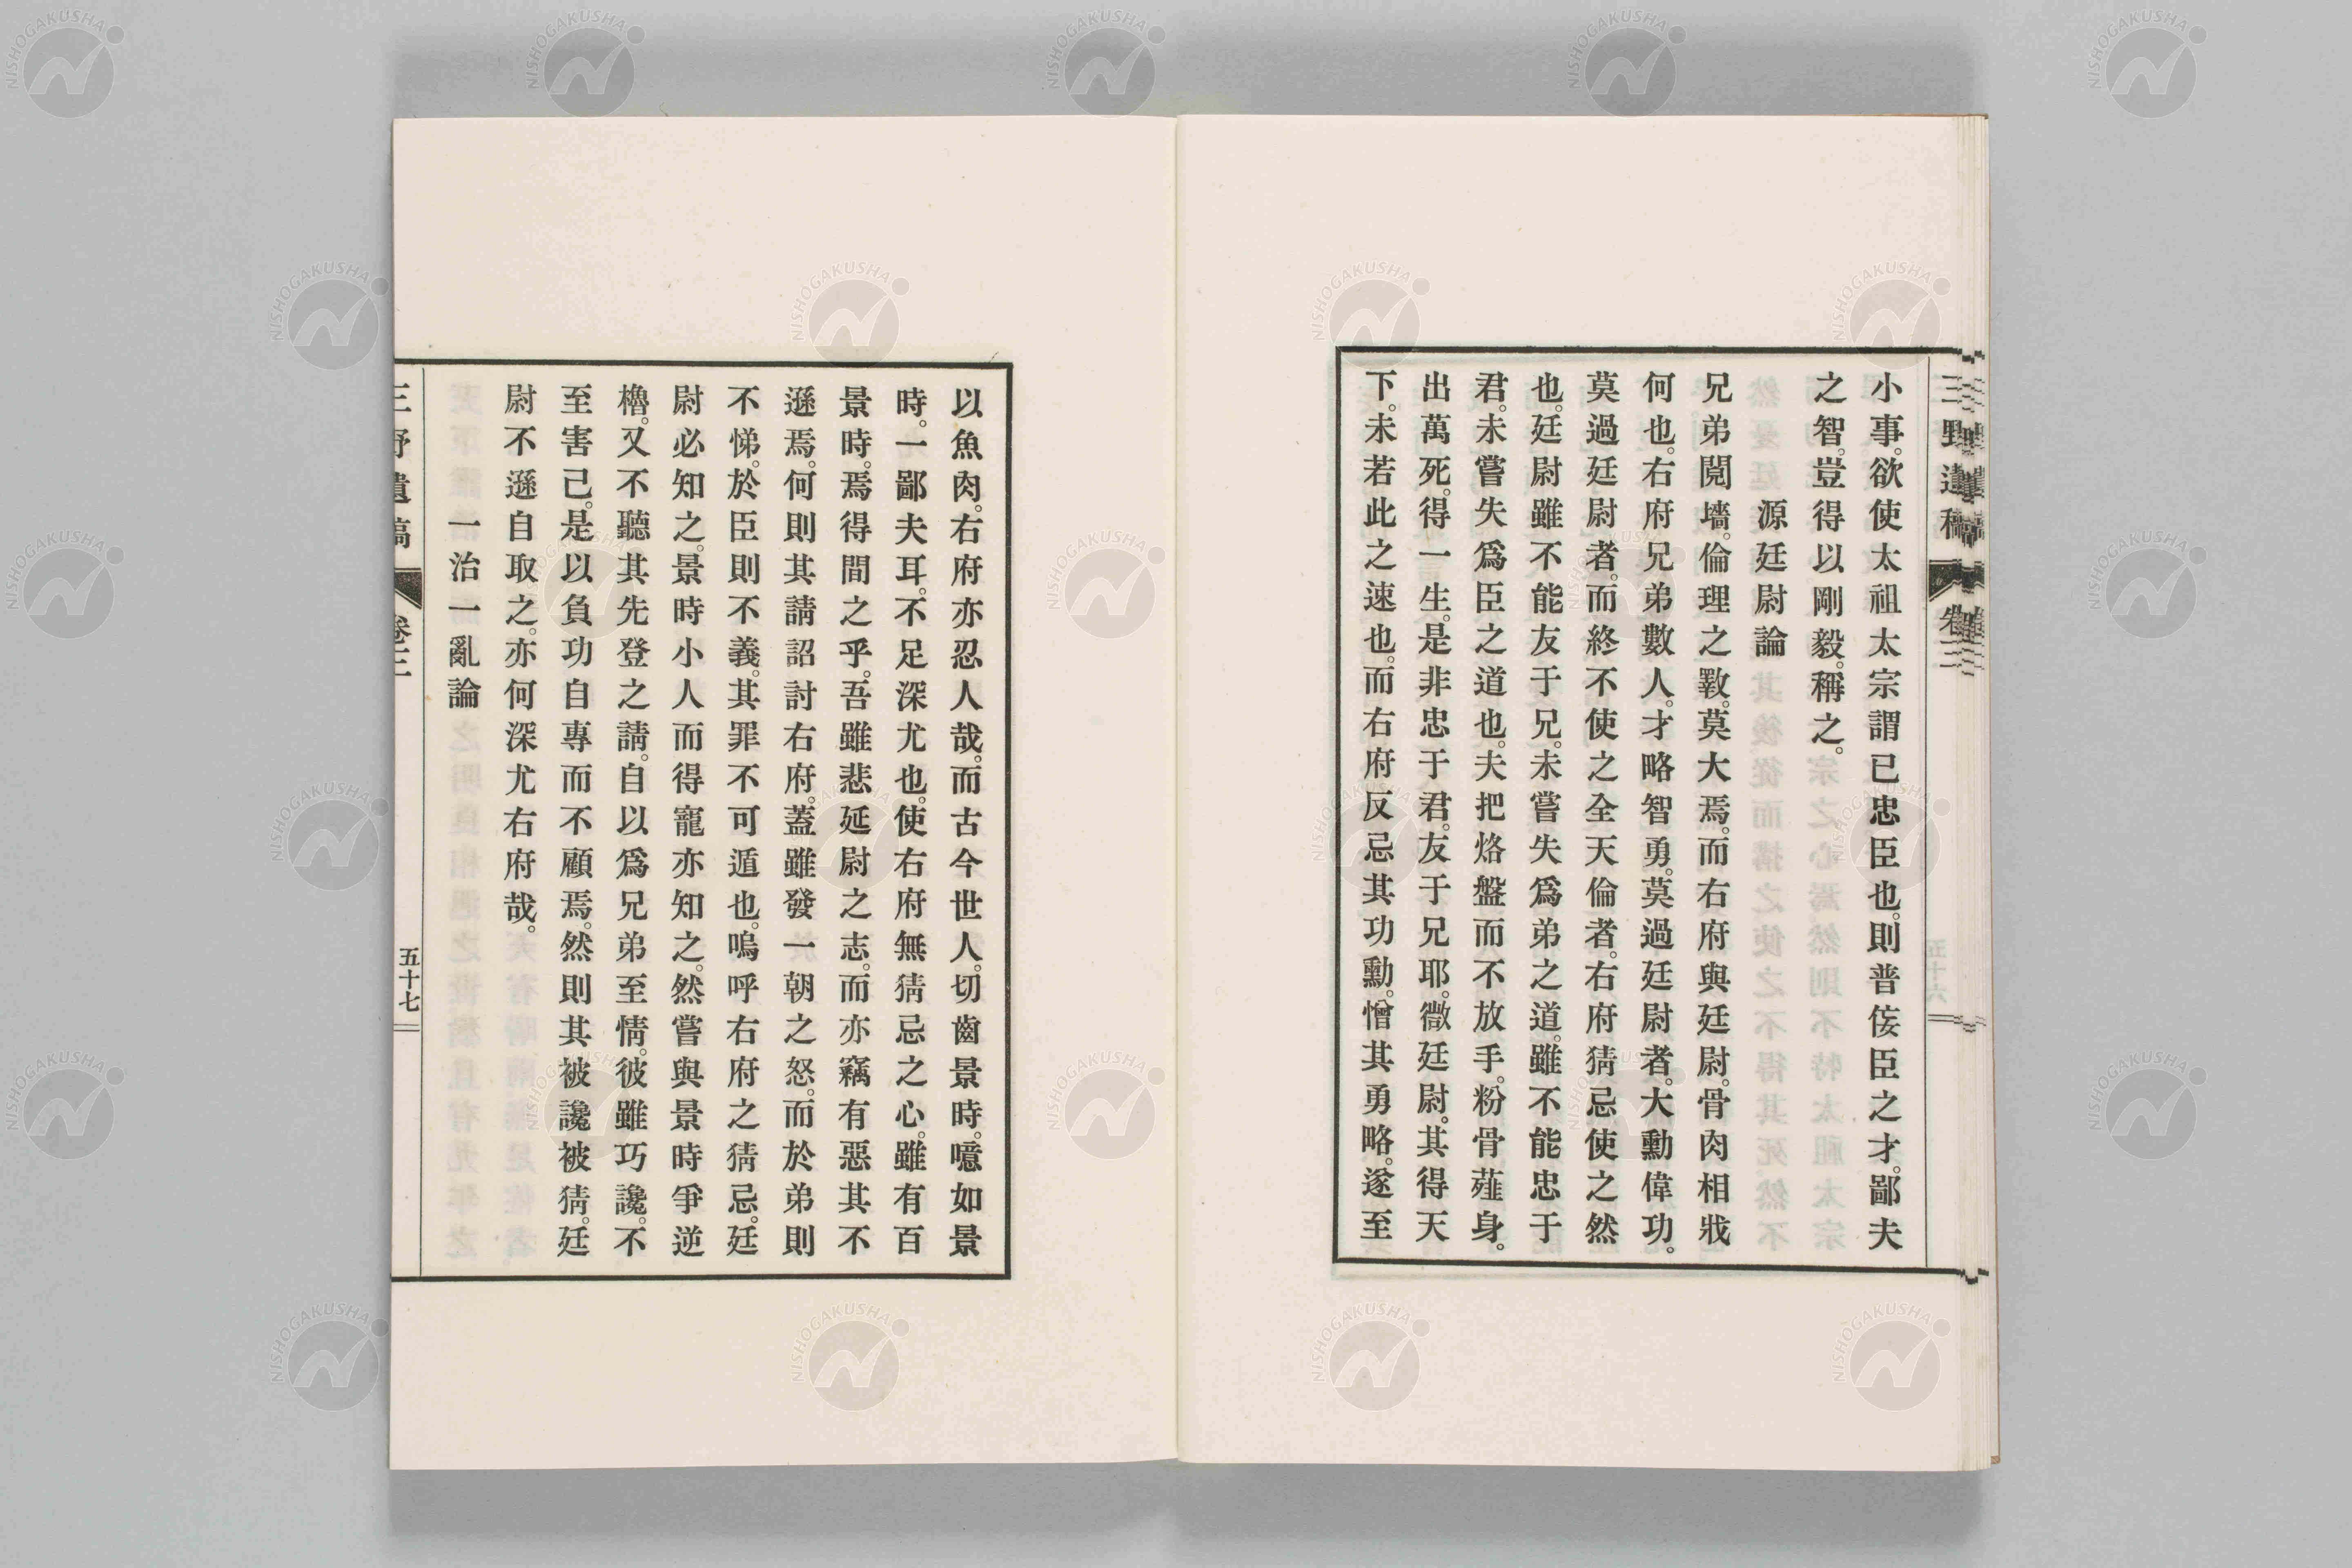 小事。欲使太祖太宗謂已忠臣也。則普侫臣之才。鄙夫
之智。豈得以剛毅。稱之。
源廷尉論
兄弟鬩墻。倫理之斁。莫大焉。而右府與廷尉。骨肉相戕
何也。右府兄弟數人。才略智勇。莫過廷尉者。大勳偉功。
莫過廷尉者。而終不使之全天倫者。右府猜忌使之然
也。廷尉雖不能友于兄。未嘗失爲弟之道。雖不能忠于
君。未嘗失爲臣之道也。夫把烙盤而不放手。粉骨薤身。
出萬死。得一生。是非忠于君。友于兄耶。微廷尉。其得天
下。未若此之速也。而右府反忌其功勳。憎其勇略。遂至
以魚肉。右府亦忍人哉。而古今世人。切齒景時。噫如景
時。一鄙夫耳。不足深尤也。使右府無猜忌之心。雖有百
景時。焉得間之乎。吾雖悲延尉之志。而亦竊有惡其不
遜焉。何則其請詔討右府。蓋雖發一朝之怒。而於弟則
不悌。於臣則不義。其罪不可遁也。嗚呼右府之猜忌。廷
尉必知之。景時小人而得寵亦知之。然嘗與景時爭逆
櫓。又不聽其先登之請。自以爲兄弟至情。彼雖巧讒。不
至害己。是以負功自專而不顧焉。然則其被讒被猜。廷
尉不遜自取之。亦何深尤右府哉。
一治一亂論
三野遺稿
卷三
五十七